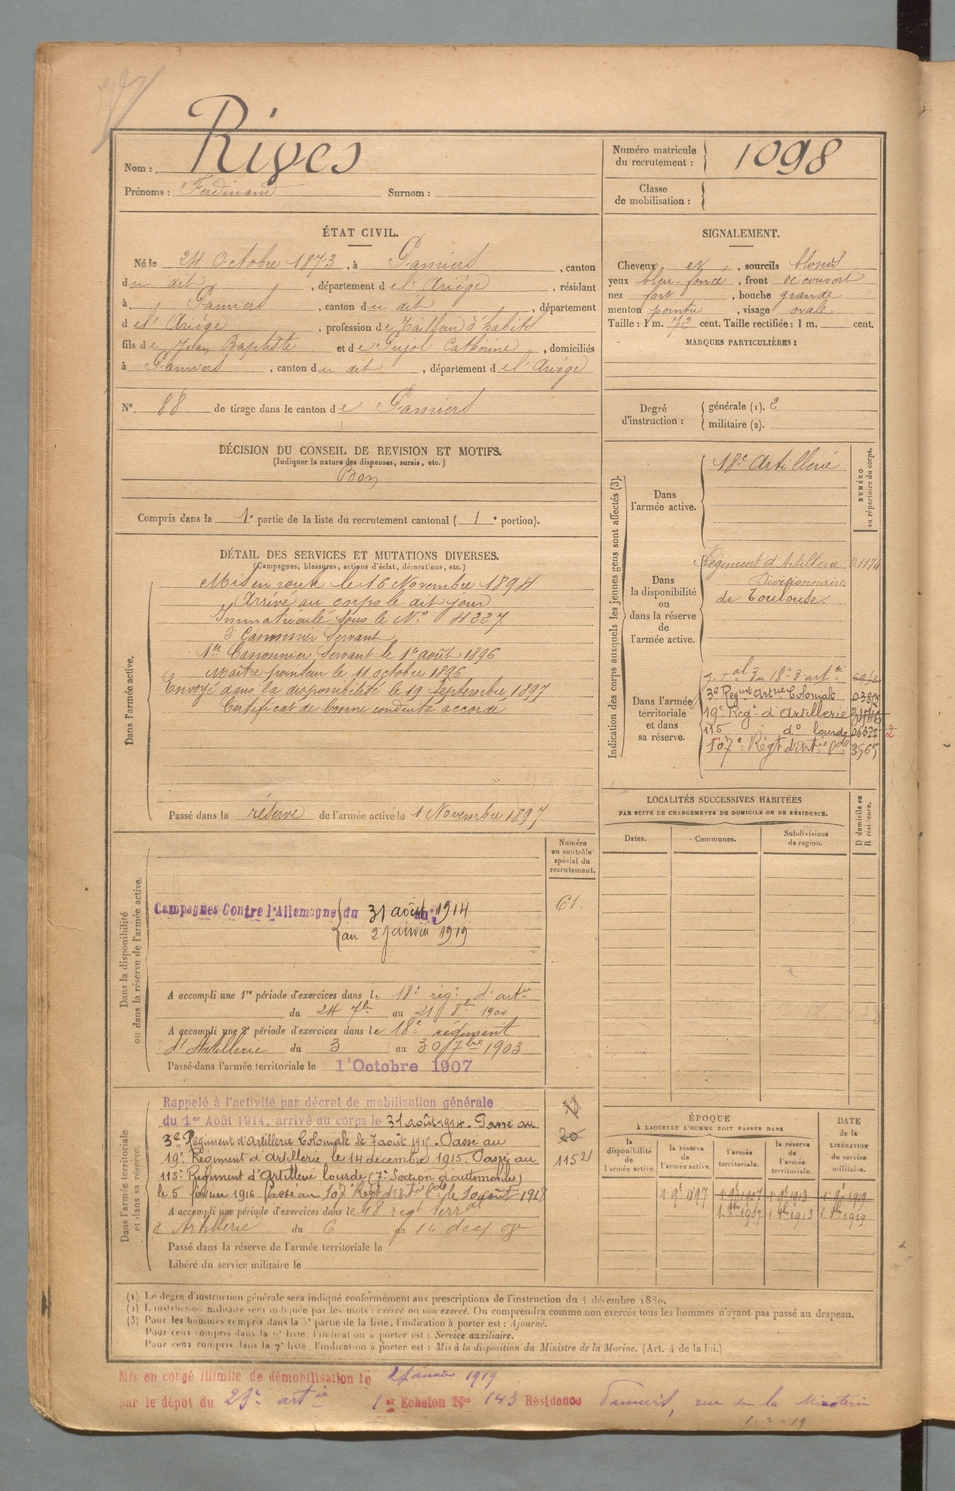 Nom : Rives
Prénoms : Ferdinand Surnom :
Numéro matricule du recrutement : 1098
Classe de mobilisation :
ÉTAT CIVIL.
Né le 24 Octobre 1873, à Pamiers, canton
du dit, département de l'Ariége, résidant
à Pamiers, canton du dit, département
de l'Ariége, profession de Tailleur d'habits
fils de Jean Baptiste et de Pujol Catherine, domiciliés
à Pamiers, canton du dit, département de l'Ariége
N° 88 de tirage dans le canton de Pamiers
SIGNALEMENT.
Cheveux et, sourcils blonds
yeux bleu-foncé, front découvert
nez fort, bouche grande
menton pointu, visage ovale
Taille : 1 m. 72 cent. Taille rectifiée : 1 m. cent.
MARQUES PARTICULIÈRES :
Degré d'instruction : générale (1). 2
militaire (2).
DÉCISION DU CONSEIL DE REVISION ET MOTIFS.
(Indiquer la nature des dispenses, sursis, etc.)
Bon
Compris dans la 1e partie de la liste du recrutement cantonal ( 1e portion).
DÉTAIL DES SERVICES ET MUTATIONS DIVERSES.
(Campagnes, blessures, actions d'éclat, décorations, etc.)
Dans l'armée active.
Mis en route le 16 Novembre 1894
Arrivé au corps le dit jour
Immatriculé sous le N° 4227
2 Canonnier Servant
1er Canonnier Servant le 1er août 1896
Maitre pointeur le 11 octobre 1896
Envoyé dans la disponibilité le 19 Septembre 1897
Certificat de bonne conduite accordé
Passé dans la réserve de l'armée active le 1 Novembre 1897
Indication des corps auxquels les jeunes gens sont affectés (3).
NUMÉRO au répertoire du corps.
Dans l'armée active.
18e Artillerie
Dans la disponibilité ou dans la réserve de l'armée active.
Régiment d'Artillerie
Divisionnaire
de Toulouse.
Dans l'armée territoriale et dans sa réserve.
3e Regnt Artrie Coloniale
19e Regt d'Artillerie
115 do lourde
107e Régt d'Artie
LOCALITÉS SUCCESSIVES HABITÉES
PAR SUITE DE CHANGEMENTS DE DOMICILE OU DE RÉSIDENCE.
Dates. Communes. Subdivisions de region.
D domicile ou R residence.
Numéro au contrôle spécial du recrutement.
61.
Dans la disponibilité ou dans la réserve de l'armée active.
Campagnes Contre l'Allemagne du 31 août 1914
au 2 janvier 1919
A accompli une 1re période d'exercices dans le 18e reg.t d'artie
du 24 7bre au 21 8bre 1900
A accompli une 2e période d'exercices dans le 18e regiment
d'Artillerie du 3 au 30 7bre 1903
Passé dans l'armée territoriale le 1er Octobre 1907
Dans l'armée territoriale et dans sa réserve.
Rappelé à l'activité par décret de mobilisation générale
du 1er Août 1914, arrivé au corps le 31 août 1914. Passé au
3e Régiment d'Artillerie Coloniale le 7 août 1915. Passé au
19e Régiment d'Artillerie le 14 décembre 1915. Passé au
115e Régiment d'Artillerie Lourde (7e Section d'automobiles)
le 5 février 1916. Passé au 107e Régt
A accompli une période d'exercices dans le 18 reg terral
d'Artillerie du 6
Passé dans la réserve de l'armée territoriale le
Libéré du service militaire le
20
115
ÉPOQUE
A LAQUELLE L'HOMME DOIT PASSER DANS
la disponibilité de l'armée active.
la réserve de l'armée active.
l'armée territoriale.
la réserve de l'armée territoriale.
DATE de la LIBÉRATION du service militaire.
1. 9bre 1897 1 9bre 1907 1 9bre 1913 1 9bre 1919
1. 8bre 1907 1. 8bre 1913 1. 8bre 1919
(1) Le degré d'instruction générale sera indiqué conformément aux prescriptions de l'instruction du 4 décembre 1889.
(2) L'instruction militaire sera indiquée par les mots : exercé ou non exercé. On comprendra comme non exercés tous les hommes n'ayant pas passé au drapeau.
(3) Pour les hommes compris dans la 5e partie de la liste, l'indication à porter est : Ajourné.
Pour ceux compris dans la 6e liste, l'indication à porter est : Service auxiliaire.
Pour ceux compris dans la 7e liste, l'indication à porter est : Mis à la disposition du Ministre de la Marine. (Art. 4 de la loi.)
Mis en congé illimité de démobilisation le 2 Janvier 1919
par le dépot du 23e artie 1er Echelon No 143 Résidence Pamiers, rue de la